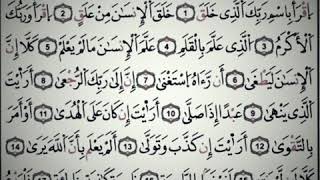 ٱقْرَأْ بِٱسْمِ رَبِّكَ ٱلَّذِى خَلَقَ ۝١ خَلَقَ ٱلْإِنسَٰنَ مِنْ عَلَقٍ ۝٢ ٱقْرَأْ وَرَبُّكَ
ٱلْأَكْرَمُ ۝٣ ٱلَّذِى عَلَّمَ بِٱلْقَلَمِ ۝٤ عَلَّمَ ٱلْإِنسَٰنَ مَا لَمْ يَعْلَمْ ۝٥ كَلَّآ إِنَّ
ٱلْإِنسَٰنَ لَيَطْغَىٰٓ ۝٦ أَن رَّءَاهُ ٱسْتَغْنَىٰٓ ۝٧ إِنَّ إِلَىٰ رَبِّكَ ٱلرُّجْعَىٰٓ ۝٨ أَرَءَيْتَ
ٱلَّذِى يَنْهَىٰ ۝٩ عَبْدًا إِذَا صَلَّىٰٓ ۝١٠ أَرَءَيْتَ إِن كَانَ عَلَى ٱلْهُدَىٰٓ ۝١١ أَوْ أَمَرَ
بِٱلتَّقْوَىٰٓ ۝١٢ أَرَءَيْتَ إِن كَذَّبَ وَتَوَلَّىٰٓ ۝١٣ أَلَمْ يَعْلَم بِأَنَّ ٱللَّهَ يَرَىٰ ۝١٤